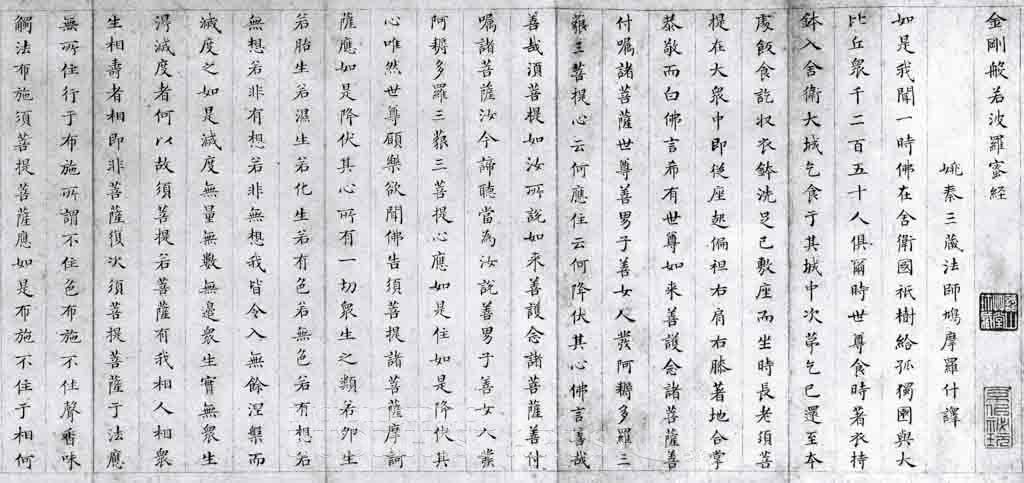 金剛般若波羅蜜經
姚秦三藏法師鳩摩羅什譯
如是我聞一時佛在舍衛國祇樹給孤獨園與大
比丘衆千二百五十人俱爾時世尊食時著衣持
鉢入舍衛大城乞食于其城中次第乞已還至本
處飯食訖収衣鉢洗足已敷座而坐時長老須菩
提在大衆中即從座起偏袒右肩右膝著地合掌
恭敬而白佛言希有世尊如来善護念諸菩薩善
付囑諸菩薩世尊善男子善女人發阿耨多羅三
藐三菩提心云何應住云何降伏其心佛言善哉
善哉須菩提如汝所說如来善護念諸菩薩善付
囑諸菩薩汝今諦聽當為汝說善男子善女人發
阿耨多羅三藐三菩提心應如是住如是降伏其
心唯然世尊願樂欲聞佛告須菩提諸菩薩摩訶
薩應如是降伏其心所有一切衆生之類若卵生
若胎生若濕生若化生若有色若無色若有想若
無想若非有想若非無想我皆令入無餘涅槃而
滅度之如是滅度無量無數無邊衆生實無衆生
得滅度者何以故須菩提若菩薩有我相人相衆
生相壽者相即非菩薩復次須菩提菩薩于法應
無所住行于布施所謂不住色布施不住聲香味
觸法布施須菩提菩薩應如是布施不住于相何